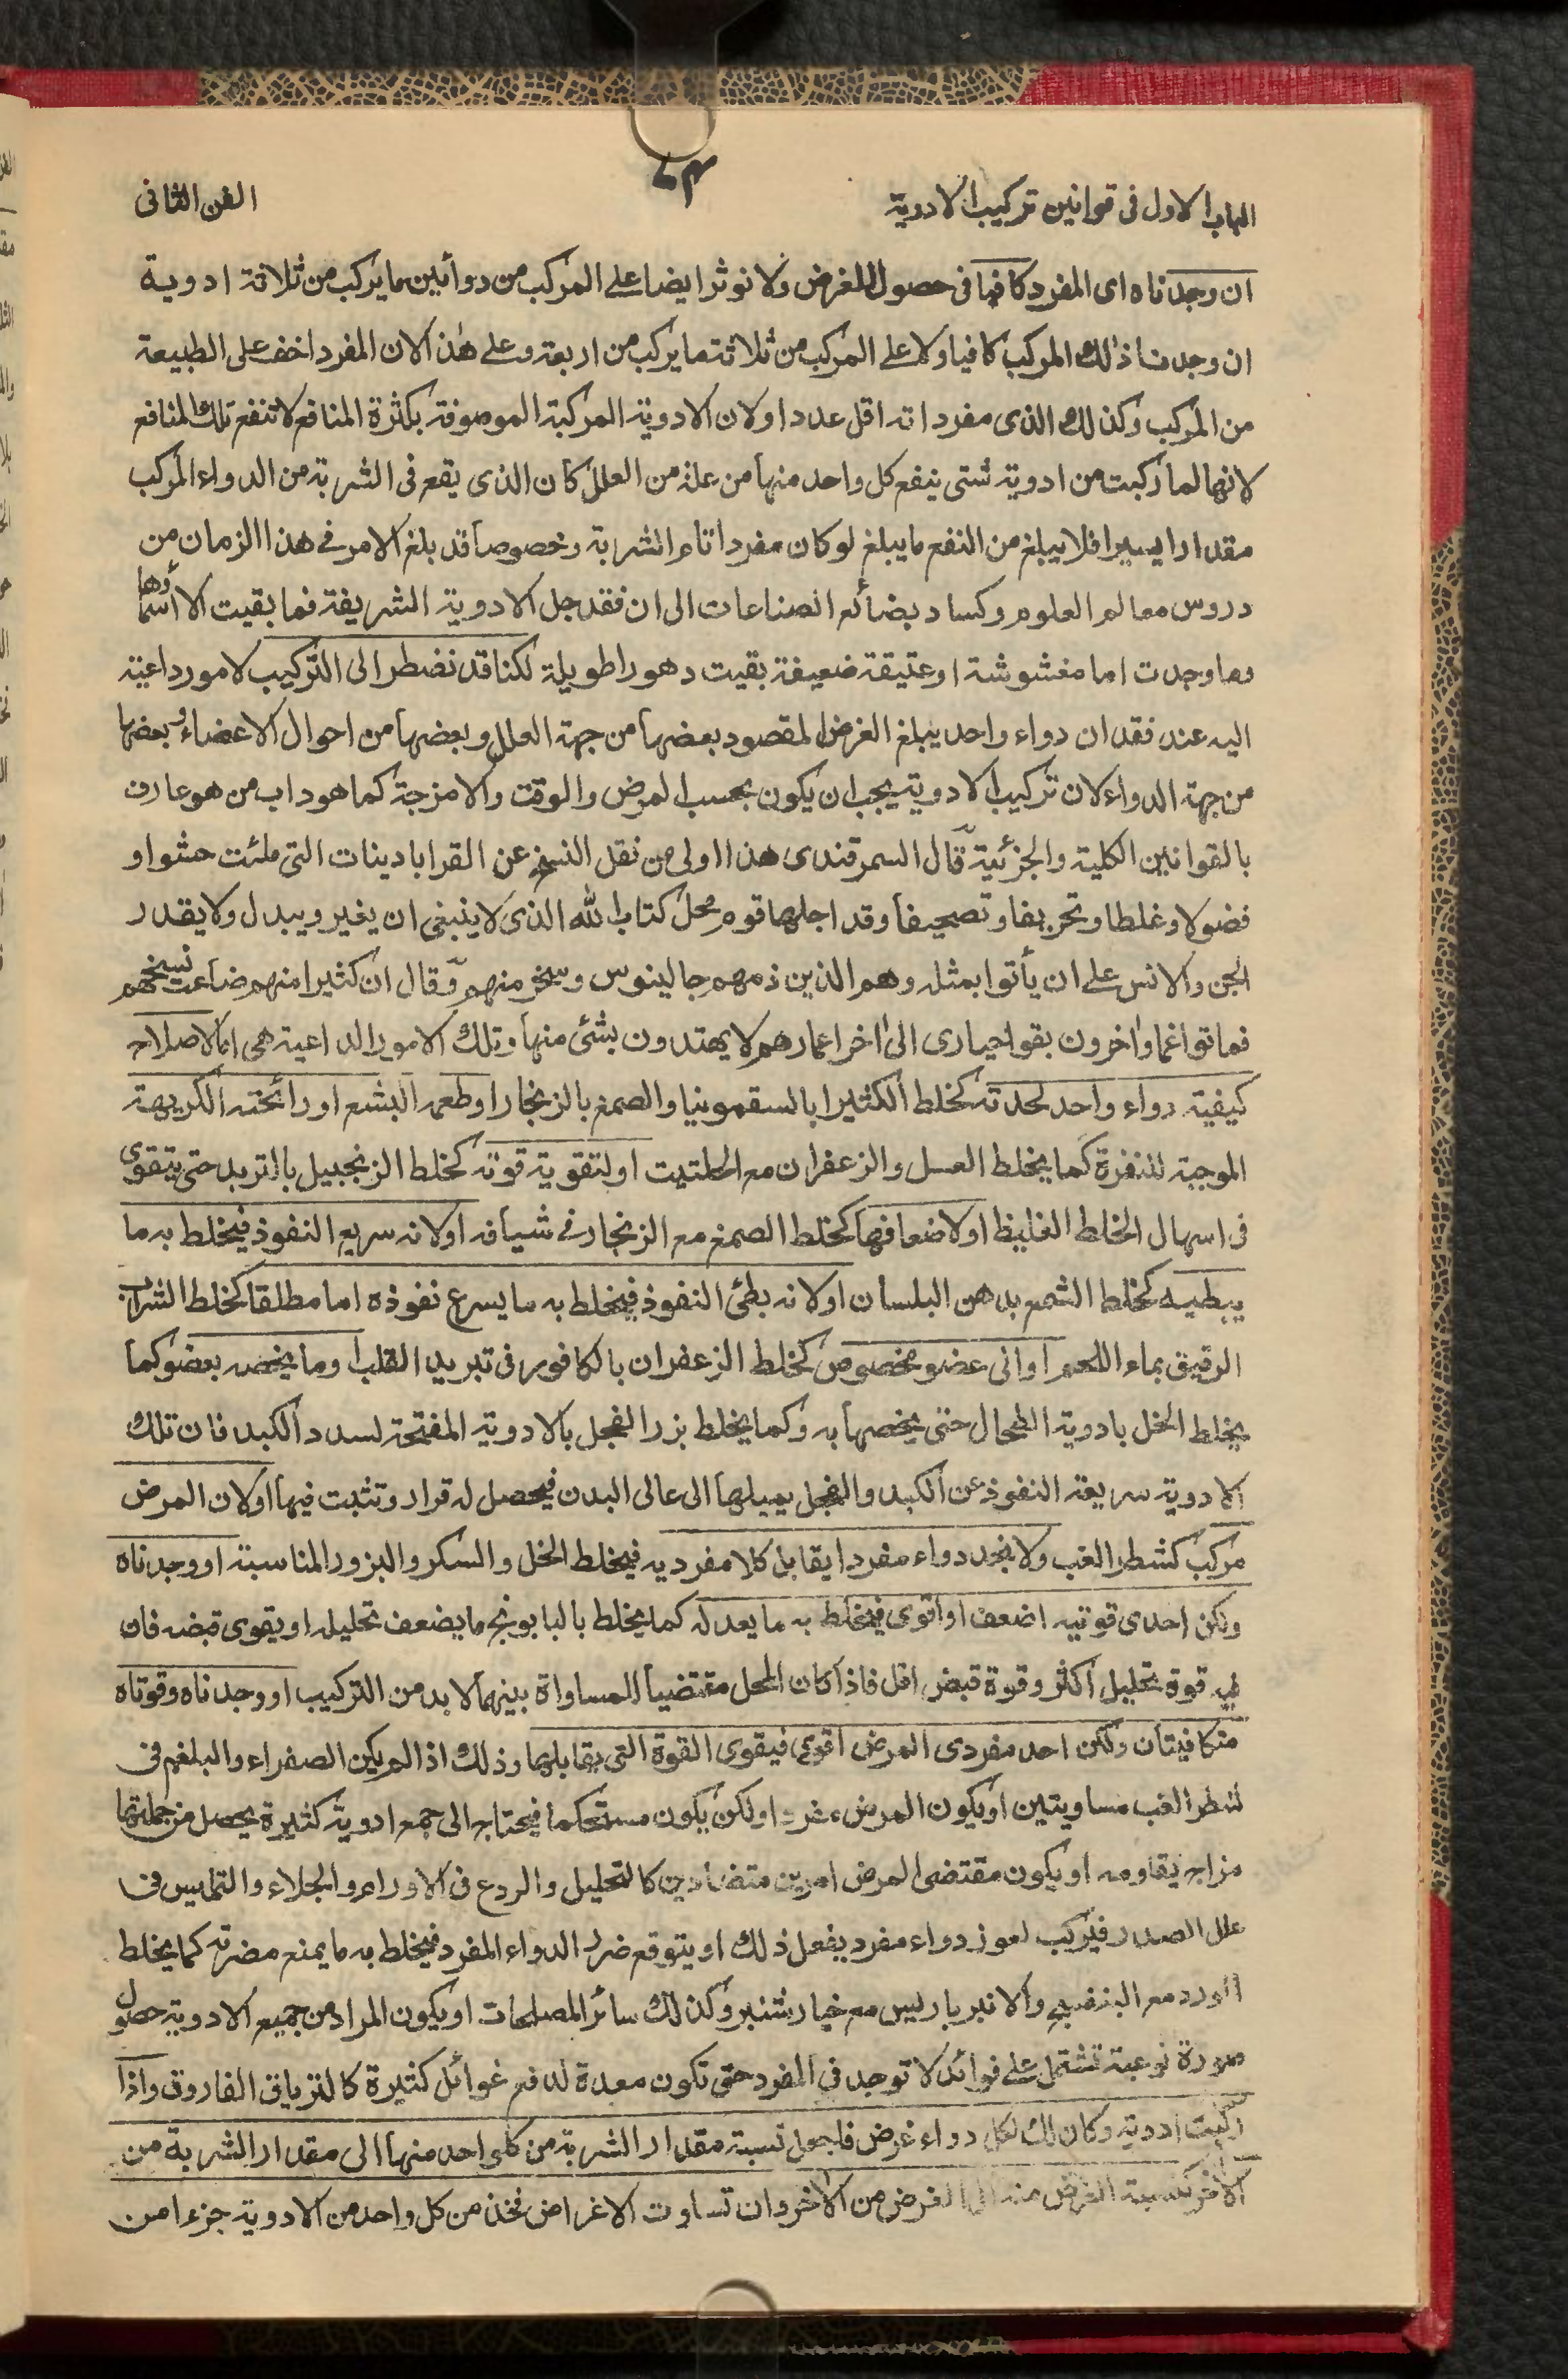 الباب الاول فى قوانين تركيب الادوية
الفن الثانى
ان وجدناه اى المفرد كافيا فى حصول الغرض ولا نوثر ايضا على المركب من دوائين ما يركب من ثلاثة ادوية
ان وجدنا ذلك المركب كافيا ولا على المركب من ثلاثة ما يركب من اربعة وعلى هذا لان المفرد اخف على الطبيعة
من المركب وكذلك الذى مفرداته اقل عددا ولان الادوية المركبة الموصوفة بكثرة المنافع لا تنفع تلك المنافع
لانها لما ركبت من ادوية شتى ينفع كل واحد منها من علة من العلل كان الذى يقع فى الشربة من الدواء المركب
مقدارا يسيرا فلا يبلغ من النفع ما يبلغ لو كان مفردا تام الشربة وخصوصا قد بلغ الامر فى هذا الزمان من
دروس معالم العلوم وكساد بضائع الصناعات الى ان فقد جل الادوية الشريفة فما بقيت الا أسماؤها
وما وجدت اما مغشوشة او عتيقة ضعيفة بقيت دهورا طويلة لكنا قد نضطر الى التركيب لامور داعية
اليه عند فقدان دواء واحد يبلغ الغرض المقصود بعضها من جهة العلل وبعضها من احوال الاعضاء وبعضها
من جهة الدواء لان تركيب الادوية يجب ان يكون بحسب المرض والوقت والامزجة كما هو داب من هو عارف
بالقوانين الكلية والجزئية قال السمرقندى هذا اولى من نقل النسخ عن القرابادينات التى ملئت حشوا و
فضولا وغلطا وتحريفا وتصحيفا وقد اجلها قوم محل كتاب الله الذى لا ينبغى ان يغير ويبدل ولا يقدر
الجن والانس على ان يأتوا بمثله وهم الذين ذمهم جالينوس وسخر منهم وقال ان كثيرا منهم ضاعت نسخهم
فماتوا غما واخرون بقوا حيارى الى اخر اعمارهم لا يهتدون بشئ منها وتلك الامور الداعية هى اما لاصلاح
كيفية دواء واحد لحدته كخلط الكثيرا بالسقمونيا والصمغ بالزنجار او طعمه البشع او رائحته الكريهة
الموجبة للنفرة كما يخلط العسل والزعفران مع الحلتيت او لتقوية قوته كخلط الزنجبيل بالتربد حتى يتقوى
فى اسهال الخلط الغليظ او لاضعافها كخلط الصمغ مع الزنجار فى شيافه او لانه سريع النفوذ فيخلط به ما
يبطيه كخلط الشمع بدهن البلسان او لانه بطئ النفوذ فيخلط به ما يسرع نفوذه اما مطلقا كخلط الشراب
الرقيق بماء اللحم او الى عضو مخصوص كخلط الزعفران بالكافور فى تبريد القلب وما يخصه بعضو كما
يخلط الخل بادوية الطحال حتى يخصها به وكما يخلط بزر الفجل بالادوية المفتحة لسدد الكبد فان تلك
الادوية سريعة النفوذ عن الكبد والفجل يميلها الى عالى البدن فيحصل له قرار وتثبت فيها او لان المرض
مركب كشطر الغب ولا نجد دواء مفردا يقابل كلا مفرديه فيخلط الخل والسكر والبزور المناسبة او وجدناه
ولكن احدى قوتيه اضعف او اقوى فيخلط به ما يعدله كما يخلط بالبابونج ما يضعف تحليله او يقوى قبضه فان
فيه قوة تحليل اكثر وقوة قبض اقل فاذا كان المحل مقتضيا للمساواة بينهما لا بد من التركيب او وجدناه وقوتاه
متكافيتان ولكن احد مفردى المرض اقوى فيقوى القوة التى يقابلها وذلك اذا لم يكن الصفراء والبلغم فى
شطر الغب مساويتين او يكون المرض مفردا ولكن يكون مستحكما فيحتاج الى جمع ادوية كثيرة يحصل من جملتها
مزاج يقاومه او يكون مقتضى المرض امرين متضادين كالتحليل والردع فى الاورام والجلاء والتمليس فى
علل الصدر فيركب لعوز دواء مفرد يفعل ذلك او يتوقع ضرر الدواء المفرد فيخلط به ما يمنع مضرته كما يخلط
الورد مع البنفسج والانبرباريس مع خيارشنبر وكذلك سائر المصلحات او يكون المراد من جميع الادوية حصول
صورة نوعية تشتمل على فوائد لا توجد فى المفرد حتى تكون معدة لدفع غوائل كثيرة كالترياق الفاروق واذا
ركبت ادوية وكان لك لكل دواء غرض فاجعل نسبة مقدار الشربة من كل واحد منها الى مقدار الشربة من
الاخر كنسبة الغرض منه الى الغرض من الاخر وان تساوت الاغراض فخذ من كل واحد من الادوية جزءا من